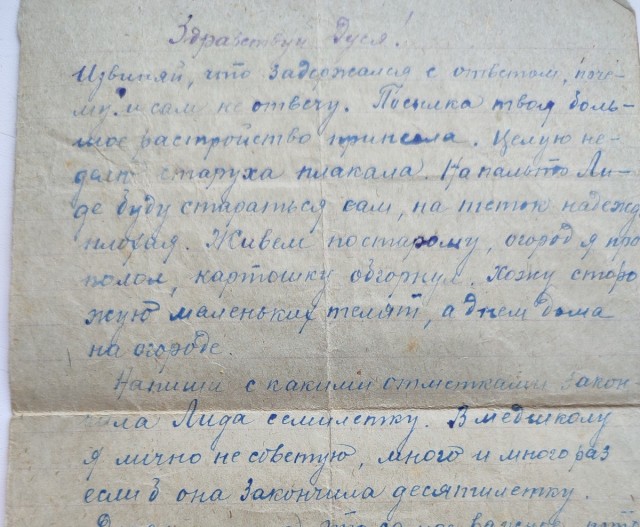 Здравствуй Дуся!
Извиняй, что задержался с ответом, поче-
му и сам не отвечу. Посылка твоя боль-
шое растройство принесла. Целую не-
делю старуха плакала. На пальто Ли-
де буду стараться сам, на теток надежд
плохая. Живем постарому, огород я про
полол, картошку обгорнул. Хожу сторо
жую маленьких телят, а днем дома
на огороде.
Напиши с какими отметками закон
чила Лида семилетку. В медшколу
я лично не советую, много и много раз
если б она закончила десятилетку.